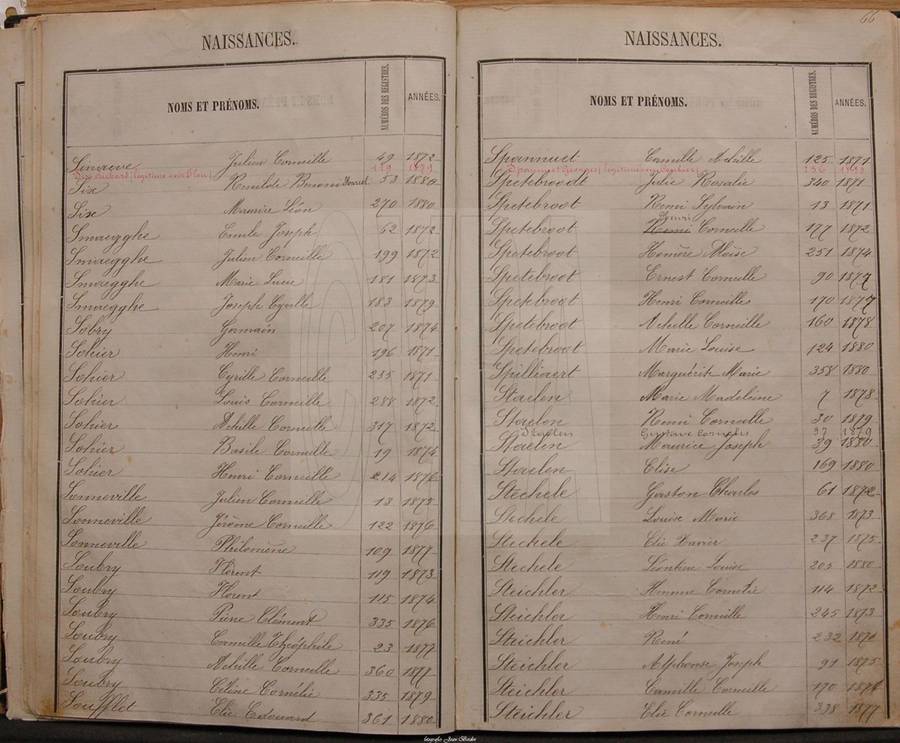 66
NAISSANCES.
NOMS ET PRÉNOMS. NUMÉROS DES REGISTRES. ANNÉES.
Julien Corneille 49 1872
119 1879
Six Romulde Bruno Honoré 53 1880
Six Maurice Léon 270 1880
Smaegghe Emile Joseph 62 1872
Smaegghe Julien Corneille 199 1872
Smaegghe Marie Lucie 181 1873
Smaegghe Joseph Cyrille 183 1879
Sobry Germain 207 1874
Sohier Henri 196 1871
Sohier Cyrille Corneille 235 1871
Sohier Louis Corneille 288 1872
Sohier Achille Corneille 317 1872
Sohier Basile Corneille 19 1874
Sohier Henri Corneille 214 1876
Sonneville Julien Corneille 13 1872
Sonneville Jérôme Corneille 122 1876
Sonneville Philomène 109 1877
Soubry Florent 119 1873
Soubry Florent 115 1874
Soubry Pierre Clément 335 1876
Soubry Corneille Théophile 23 1877
Soubry Achille Corneille 360 1877
Soubry Célène Cornélie 335 1879
Soufflet Elie Edouard 361 1880
NAISSANCES.
NOMS ET PRÉNOMS. NUMÉROS DES REGISTRES. ANNÉES.
Spannuet Camille Achille 125 1871
Spetebroodt Julie Rosalie 340 1871
Spetebroot Remi Sylvain 13 1871
Henri
Spetebroot Remi Corneille 177 1872
Spetebroot Honoré Moïse 251 1874
Spetebroot Ernest Corneille 90 1877
Spetebroot Henri Corneille 170 1877
Spetebroot Achille Corneille 160 1878
Spetebroot Marie Louise 124 1880
Spilliaert Marguérite Marie 358 1880
Staelen Marie Madeleine 7 1878
Staelen Remi Corneille 30 1879
Staelen Gustave Cornelis 37 1879
Staelen Maurice Joseph 39 1880
Staelen Elise 169 1880
Stechele Gaston Charles 61 1872
Stechele Louise Marie 368 1873
Stechele Elie Xavier 237 1875
Stechele Léontine Louise 205 1880
Steichler 114 1872
Steichler Henri Corneille 245 1873
Steichler René 232 1874
Steichler Alphonse Joseph 91 1875
Steichler Camille Corneille 170 1876
Steichler Elie Corneille 338 1877